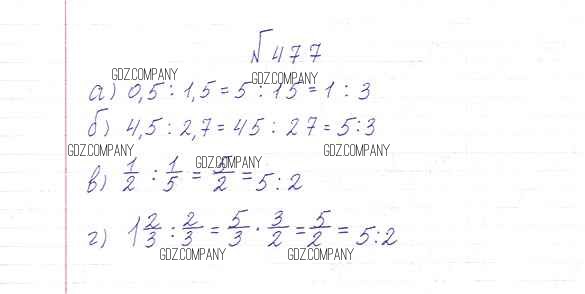 № 477
GDZ.COMPANY GDZ.COMPANY
а) 0,5 : 1,5 = 5 : 15 = 1 : 3
б) 4,5 : 2,7 = 45 : 27 = 5:3
GDZ.COMPANY GDZ.COMPANY GDZ.COMPANY
в) 1/2 : 1/5 = 5/2 = 5:2
г) 1 2/3 : 2/3 = 5/3 · 3/2 = 5/2 = 5:2
GDZ.COMPANY GDZ.COMPANY